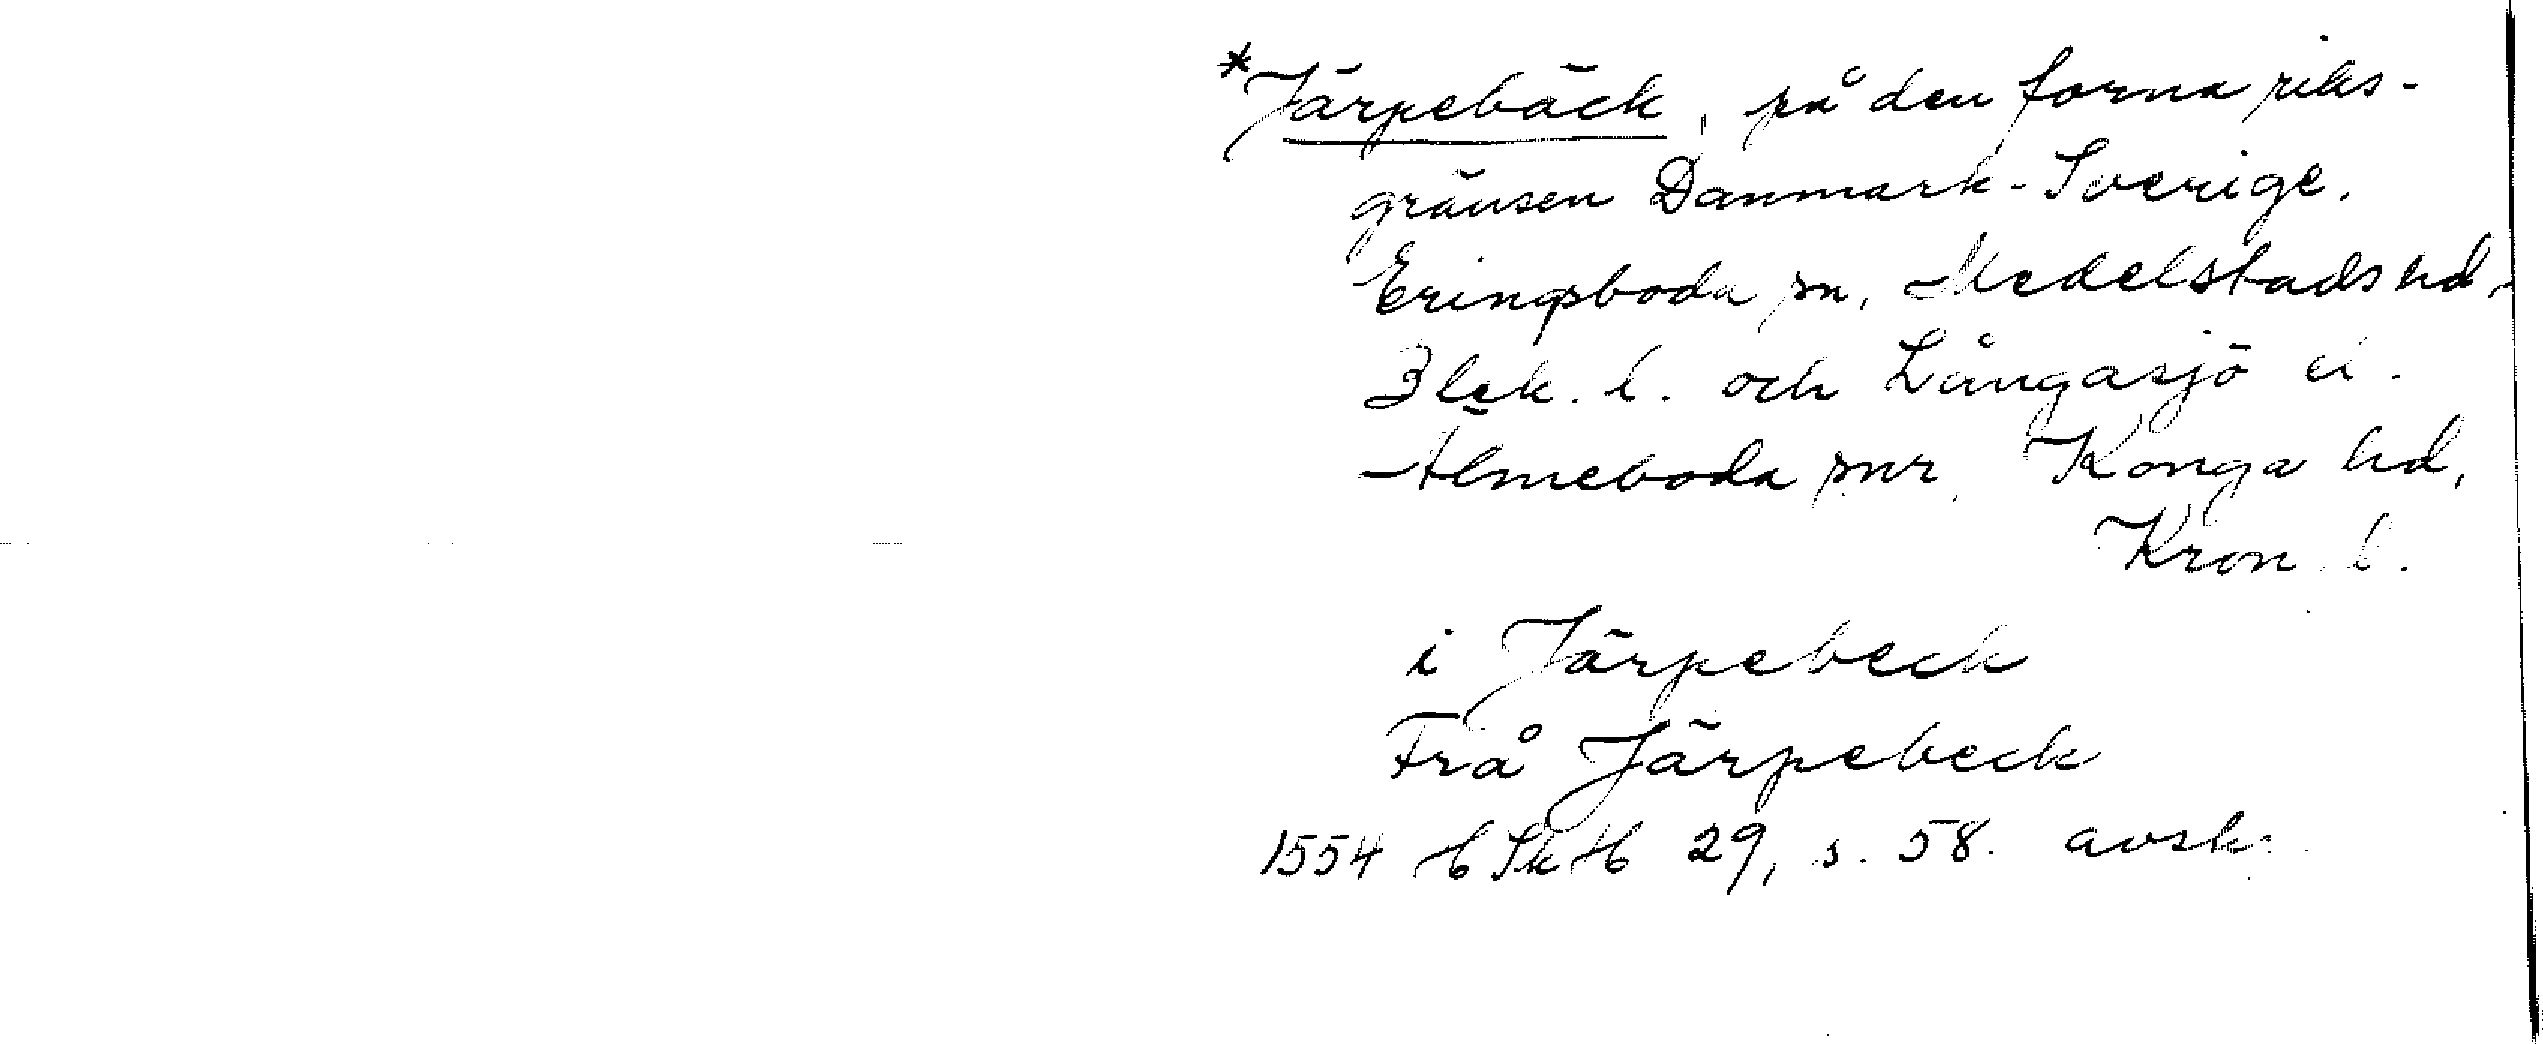 *Järpebäck, på den forna riks-
gränsen Danmark-Sverige.
Eringsboda sn, Medelstads hd,
Blek. l. och Långasjö el.
Älmeboda snr, Konga hd,
Kron. l.
i Järpebeck
Frå Järpebeck
1554 HSkH 29, s. 58. avskr.